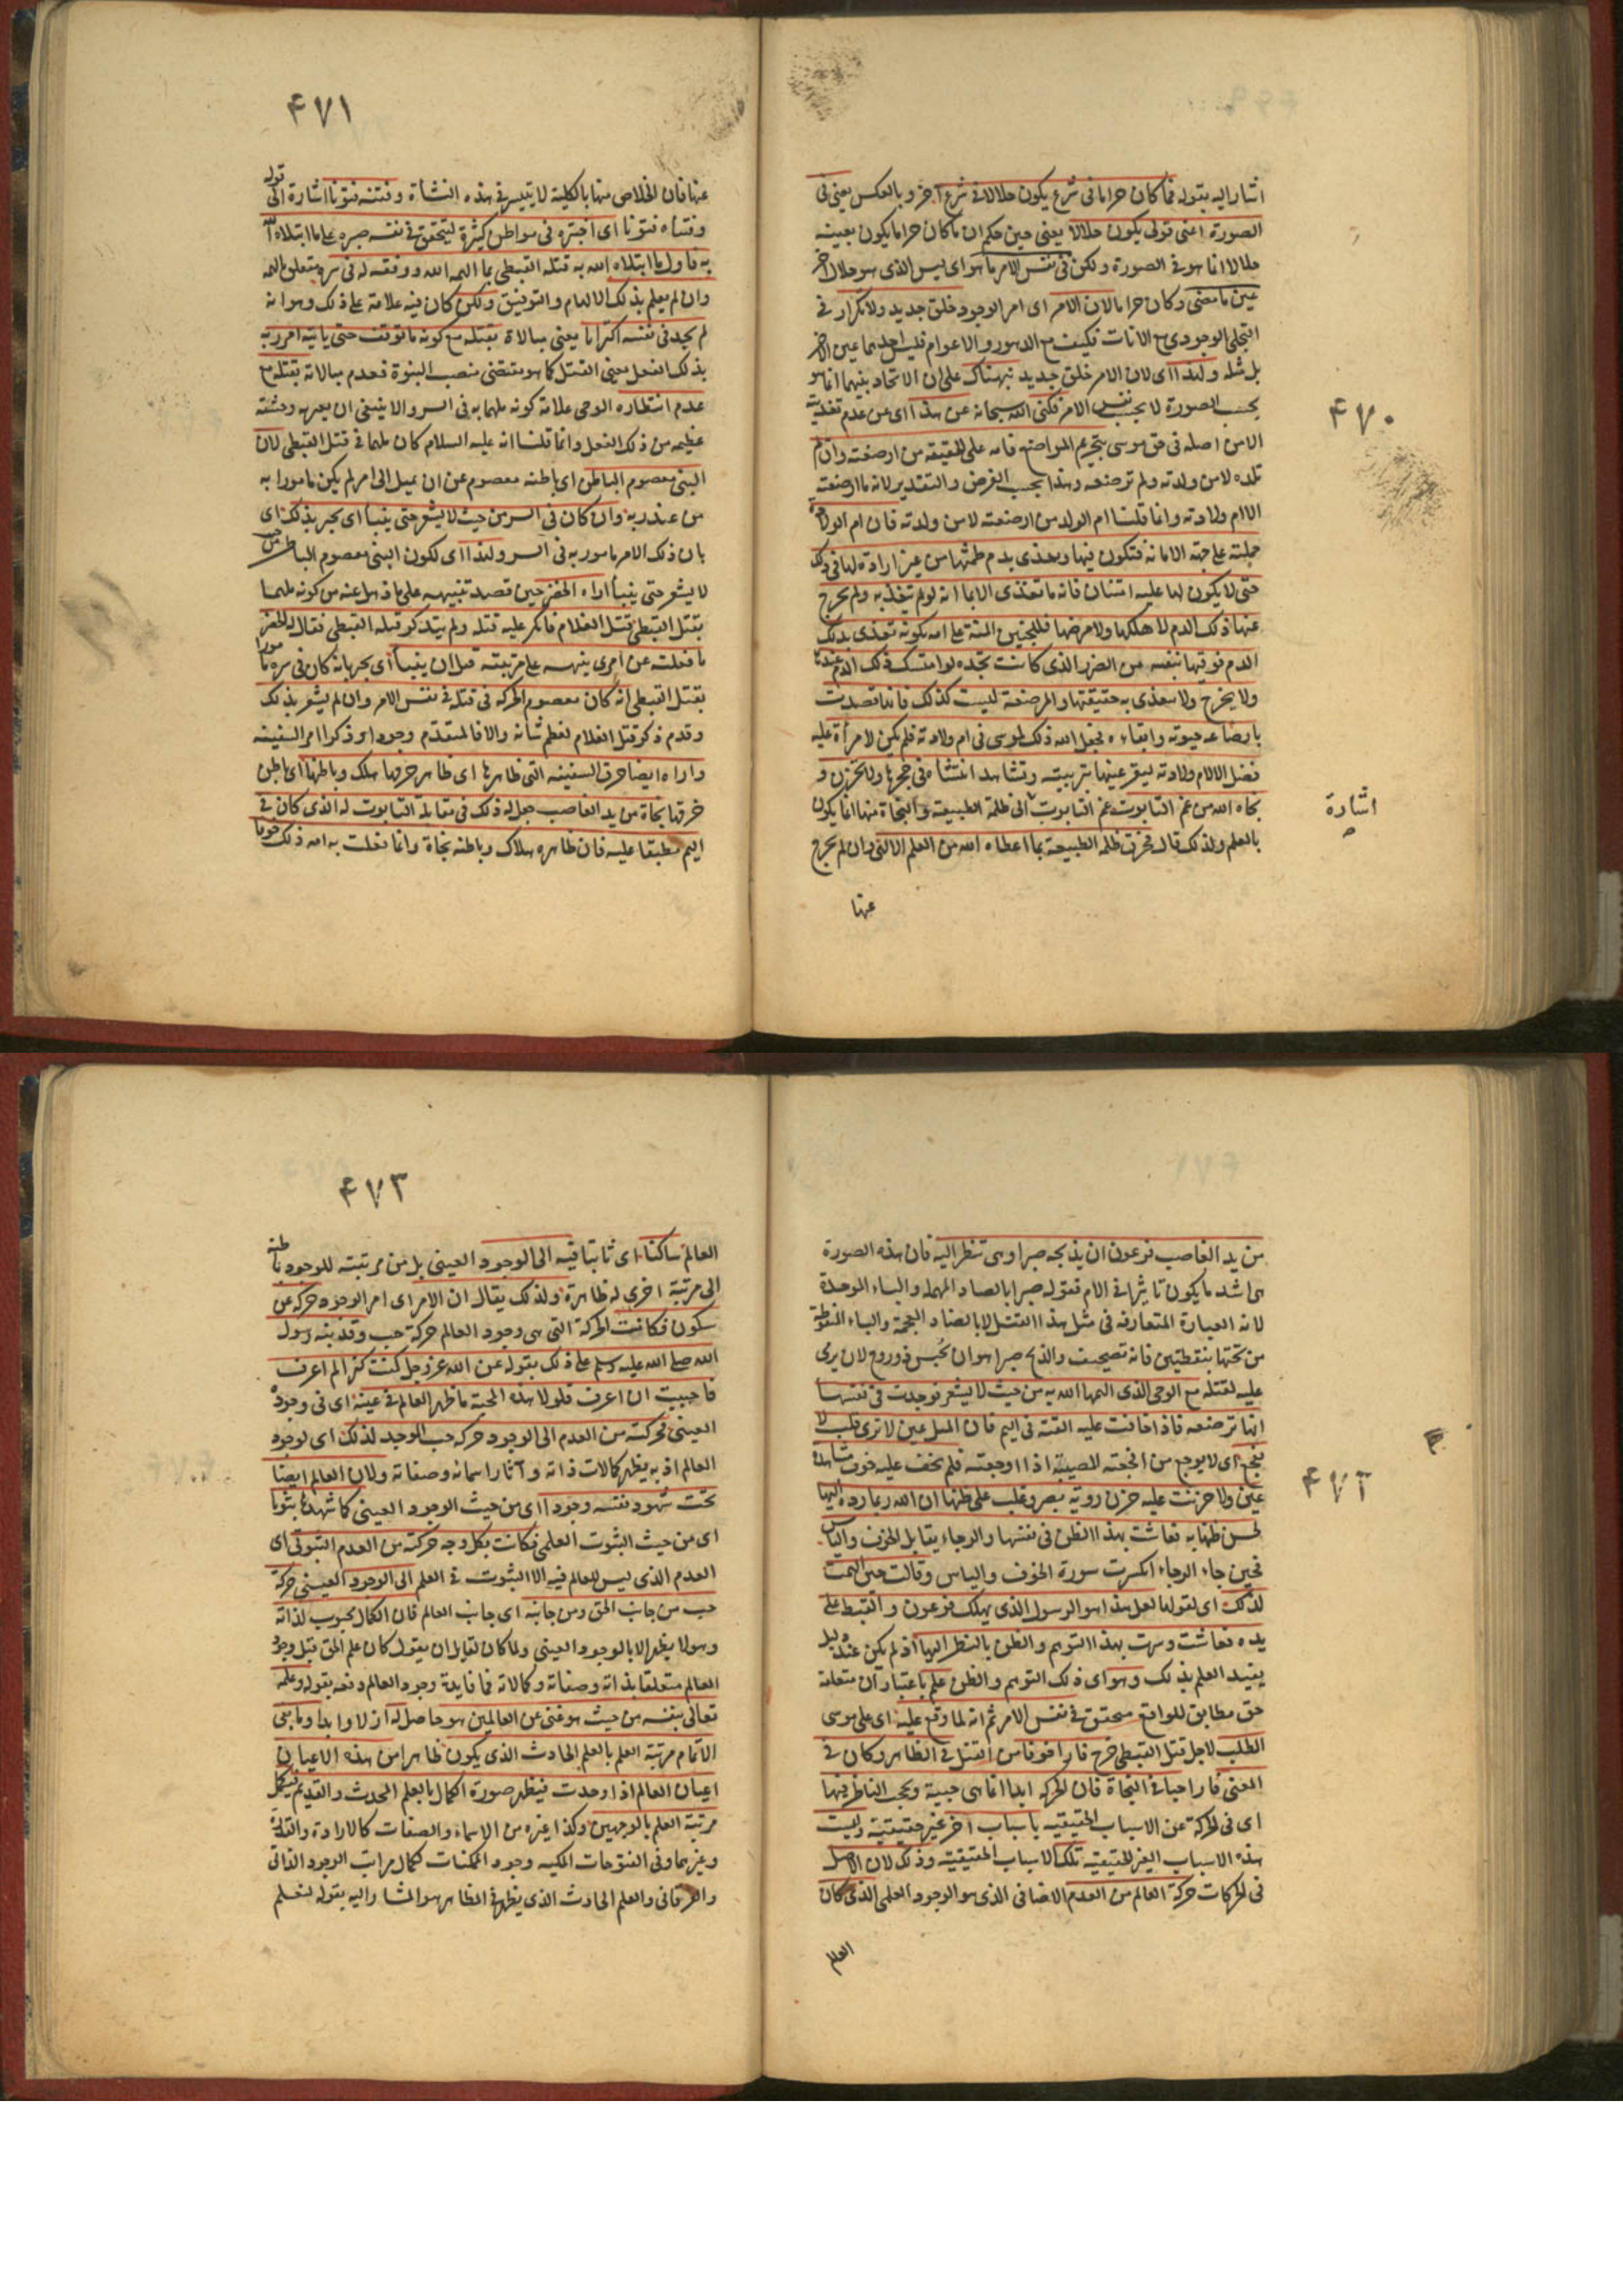 ۴۷۰
اشار اليه بقوله فما كان حراما فى شرع يكون حلالا فى شرع آخر وبالعكس يعنى فى
الصورة اعنى قولى يكون حلالا يعنى حين حكم ان ما كان حراما يكون بعينه
حلالا انما هو فى الصورة ولكن فى نفس الامر ما هو اى ليس الذى هو حلال الآخر
عين ما مضى وكان حراما لان الامر اى امر الوجود خلق جديد ولا تكرار فى
التجلى الوجودى مع الانات فكيف مع الدهور والاعوام فليس احدهما عين الآخر
بل مثله ولهذا اى لان الامر خلق جديد نبهناك على ان الاتحاد بينهما انما هو
بحسب الصورة لا بحسب نفس الامر فكنى الله سبحانه عن هذا اى عن عدم تغذيته
الا من اصله فى حق موسى بتحريم المراضع فامه على الحقيقة من ارضعته وان لم
تلده لا من ولدته ولم ترضعه وهذا بحسب الفرض والتقدير لانه ما ارضعته
الا ام ولادته وانما قلنا ام الولد من ارضعته لا من ولدته فان ام الولادة
حملته على جهة الامانة فتكون فيها وتغذى بدم طمثها من غير ارادة لها فى ذلك
حتى لا يكون لها عليه امتنان فانه ما تغذى الا بما انه لو لم يتغذ به ولم يخرج
عنها ذلك الدم لاهلكها ولامرضها فللجنين المنة على امه بكونه تغذى بذلك
الدم فوقيها بنفسه من الضرر الذى كانت تجده لو امتسك ذلك الدم عندها
ولا يخرج ولا يتغذى به حقيقتها والمرضعة ليست كذلك فانها قصدت
بارضاعه حيوته وابقاءه فجعل الله ذلك لموسى فى ام ولادته فلم يكن لامرأة عليه
فضل الا لام ولادته ليقر عينها بتربيته وتشاهد انتشاءه فى حجرها ولا تحزن و
نجاه الله من غم التابوت غم التابوت الى ظلمة الطبيعة والنجاة منها انما يكون
اشارة
بالعلم ولذلك قال فخرق ظلمة الطبيعة بما اعطاه الله من العلم الالهى وان لم يخرج
عنها
۴۷۱
عنها فان الخلاص منها بالكلية لا يتيسر فى هذه النشأة وفتنه فتونا اشارة الى قوله
وفتناه فتونا اى اختبره فى مواطن كثيرة ليتحقق فى نفسه صبره على ما ابتلاه الله
به فاول ما ابتلاه الله به قتله القبطى بما الهمه الله ووفقه له فى سره متعلق الهمه
وان لم يعلم بذلك الالهام والتوفيق ولكن كان فيه علامة على ذلك وهو انه
لم يجد فى نفسه اكتراثا يعنى مبالاة بقتله مع كونه ما توقف حتى يأتيه امر ربه
بذلك الفعل يعنى القتل كما هو مقتضى منصب النبوة فعدم مبالاته بقتله مع
عدم انتظاره الوحى علامة كونه ملهما به فى السر والا ينبغى ان يعتريه وحشته
عظيمه من ذلك الفعل وانما قلنا انه عليه السلام كان ملهما فى قتل القبطى لان
النبى معصوم الباطن اى باطنه معصوم عن ان يميل الى امر لم يكن مامورا به
من عند ربه وان كان فى السر من حيث لا يشعر حتى ينبأ اى يخبر بذلك اى
بان ذلك الامر مامور به فى السر ولهذا اى لكون النبى معصوم الباطن من
لا يشعر حتى ينبأ اراه الخضر حين قصد تنبيهه على ما ذهل عنه من كونه ملهما
بقتل القبطى قتل الغلام فانكر عليه قتله ولم يتذكر قتله القبطى فقال له الخضر
ما فعلته عن امرى ينبهه على مرتبته قبل ان ينبأ اى يخبر بانه كان فى سره مامورا
بقتل القبطى انه كان معصوم الحركه فى قتله فى نفس الامر وان لم يشعر بذلك
وقدم ذكر قتل الغلام لعظم شانه والا فالمتقدم وجودا وذكرا امر السفينه
واراه ايضا خرق السفينه التى ظاهرها اى ظاهر خرقها هلك وباطنها اى باطن
خرقها نجاة من يد الغاصب جعل له ذلك فى مقابلة التابوت له الذى كان فى
اليم مطبقا عليه فان ظاهره هلاك وباطنه نجاة وانما فعلت به امه ذلك خوفا
۴۷۲
من يد الغاصب فرعون ان يذبحه صبرا وهى تنظر اليه فان هذه الصورة
هى اشد ما يكون تاثيرا فى الام فقوله صبرا بالصاد المهملة والباء الموحدة
لانه العبارة المتعارفه فى مثل هذا القتل لا بالضاد المعجمة والياء المنقوطة
من تحتها بنقطتين فانه تصحيف والذبح صبرا هو ان يحبس ذو روح لان يرى
عليه لقتله مع الوحى الذى الهمها الله به من حيث لا يشعر فوجدت فى نفسها
انها ترضعه فاذا خافت عليه القته فى اليم فان المثل عين لا ترى قلب لا
يفجع اى لا يوجع من افجعته المصيبة اذا اوجعته فلم تخف عليه خوف مشاهدة
عين ولا حزنت عليه حزن رؤية بصر وغلب على ظنها ان الله ربما رده اليها
لحسن ظنها به فعاشت بهذا الظن فى نفسها والرجاء يقابل الخوف والياس
فحين جاء الرجاء انكسرت سورة الخوف والياس وقالت حين الهمت
لذلك اى لقولها لعل هذا هو الرسول الذى يهلك فرعون والقبط على
يده فعاشت وسرت بهذا التوهم والظن بالنظر اليها اذ لم يكن عند دليل
يفيد العلم بذلك وهو اى ذلك التوهم والظن علم باعتبار ان متعلقه
حق مطابق للواقع متحقق فى نفس الامر ثم انه لما وقع عليه اى على موسى
الطلب لاجل قتل القبطى خرج فارا خوفا من القتل فى الظاهر وكان فى
المعنى فارا حبا فى النجاة فان الحركه ابدا انما هى حبية ويحجب الناظر فيها
اى فى الحركة عن الاسباب الحقيقية باسباب آخر غير حقيقية وليست
هذه الاسباب الغير الحقيقية تلك الاسباب الحقيقية وذلك لان الاصل
فى الحركات حركة العالم من العدم الاضافى الذى هو الوجود العلمى الذى كان
العالم
۴۷۳
العالم ساكنا اى ثابتا فيه الى الوجود العينى بل من مرتبته للوجود باطنه
الى مرتبة اخرى له ظاهرة ولذلك يقال ان الامر اى امر الوجود حركة عن
سكون فكانت الحركة التى هى وجود العالم حركة حب وقد نبه رسول
الله صلى الله عليه وسلم على ذلك بقوله عن الله عز وجل كنت كنزا لم اعرف
فاحببت ان اعرف فلولا هذه المحبة ما ظهر العالم فى عينه اى فى وجوده
العينى فحركته من العدم الى الوجود حركة حب الموجد لذلك اى لوجود
العالم اذ به يظهر كمالات ذاته وآثار اسمائه وصفاته ولان العالم ايضا
تحت شهود نفسه وجودا اى من حيث الوجود العينى كما شهدها ثبوتا
اى من حيث الثبوت العلمى فكانت بكل وجه حركته من العدم الثبوتى اى
العدم الذى ليس للعالم فيه الا الثبوت فى العلم الى الوجود العينى حركة
حب من جانب الحق ومن جانبه اى جانب العالم فان الكمال محبوب لذاته
وهو لا يظهر الا بالوجود العينى ولما كان لقايل ان يقول كان علم الحق قبل وجود
العالم متعلقا بذاته وصفاته وكمالاته فما فايدة وجود العالم دفعه بقوله وعلمه
تعالى بنفسه من حيث هو غنى عن العالمين هو حاصل له ازلا وابدا وما بقى
الا تمام مرتبة العلم بالعلم الحادث الذى يكون ظاهرا من هذه الاعيان
اعيان العالم اذا وجدت فيظهر صورة الكمال بالعلم المحدث والقديم فيكمل
مرتبة العلم بالوجهين وكذا غيره من الاسماء والصفات كالارادة والقدرة
وغيرهما وفى الفتوحات المكيه وجود الممكنات كمال مراتب الوجود الذاتى
والعرفانى والعلم الحادث الذى يظهر فى الظاهر هو المشار اليه بقوله لنعلم